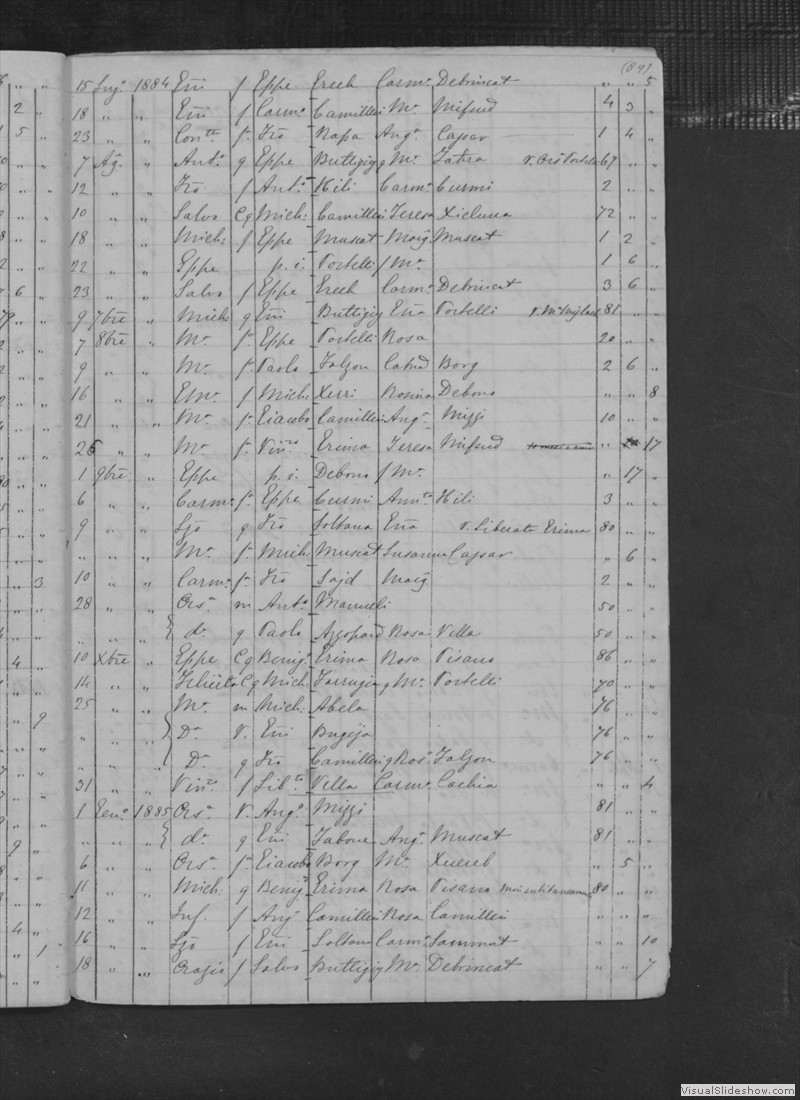 (89)
15 Lug. 1884 Eñi f Eppe Grech Carm. Debrincat " " 5
18 " " Eñi f Carm. Camilleri Mª Mifsud 4 3 "
23 " " Conta f. Frõ Rapa Ang. Cassar 1 4 "
7 Ag. " Ant. g Eppe Buttigieg g Mª Zahra v. Orsª Portelli 69 " "
12 " " Frõ f Ant. Hili Carm. Curmi 2 " "
10 " " Salvo Cg Mich. Camilleri Teresa Xicluna 72 " "
18 " " Mich. f Eppe Muscat Marg. Muscat 1 2 "
22 " " Eppe p. i. Portelli f Mª 1 6 "
23 " " Salvo f Eppe Grech Carm. Debrincat 3 6 "
9 7bre " Mich. g Eñi Buttigieg Eña Portelli 81 " "
7 8bre " Mª f. Eppe Portelli Rosa 20 " "
9 " " Mª f. Paolo Falzon Catª Borg 2 6 "
16 " " f Mich. Xerri Rosina Debono " " 8
21 " " Mª f. Giacobo Camilleri Ang. Mizzi 10 " "
26 " " Mª f. Vinzo Grima Teresa Mifsud " 17
1 9bre " Eppe p. i. Debono f Mª " 17 "
6 " " Carm. f. Eppe Curmi Annta Hili 3 " "
9 " " g Frõ Soltana Eña v. Liberata Grima 80 " "
" " " Mª f. Mich. Muscat Susanna Cassar " 6 "
10 " " Carm. f. Frõ Sajd Marg. 2 " "
28 " " Orsª m Ant. Mamueli 50 " "
" " " { dª g Paolo Azzopardi Rosa Vella 50 " "
10 Xbre " Eppe Cg Benig. Grima Rosa Pisano 86 " "
14 " " Felicita Cg Mich. Farrugia g Mª Portelli 70 " "
25 " " Mª m Mich. Abela 76 " "
" " " { Dª v. Eñi Bugeja 76 " "
" " " Dª g Frõ Camilleri g Rosª Falzon 76 " "
31 " " Vinza f Libto Vella Carm. Cachia " " 4
1 Gen. 1885 Orsª v. Ang. Mizzi 81 " "
" " " { dª g Eñi Tabone Ang. Muscat 81 " "
6 " " Orsª f. Giacobo Borg Mª Xuereb " 5 "
11 " " Mich. g Benig. Grima Rosa Pisano 80 " "
12 " " Inf. f Ang. Camilleri Rosa Camilleri " " "
16 " " f Eñi Soltana Carm. Sammut " " 10
18 " " Orazio f Salvo Buttigieg Mª Debrincat " " 7
VisualSlideshow.com